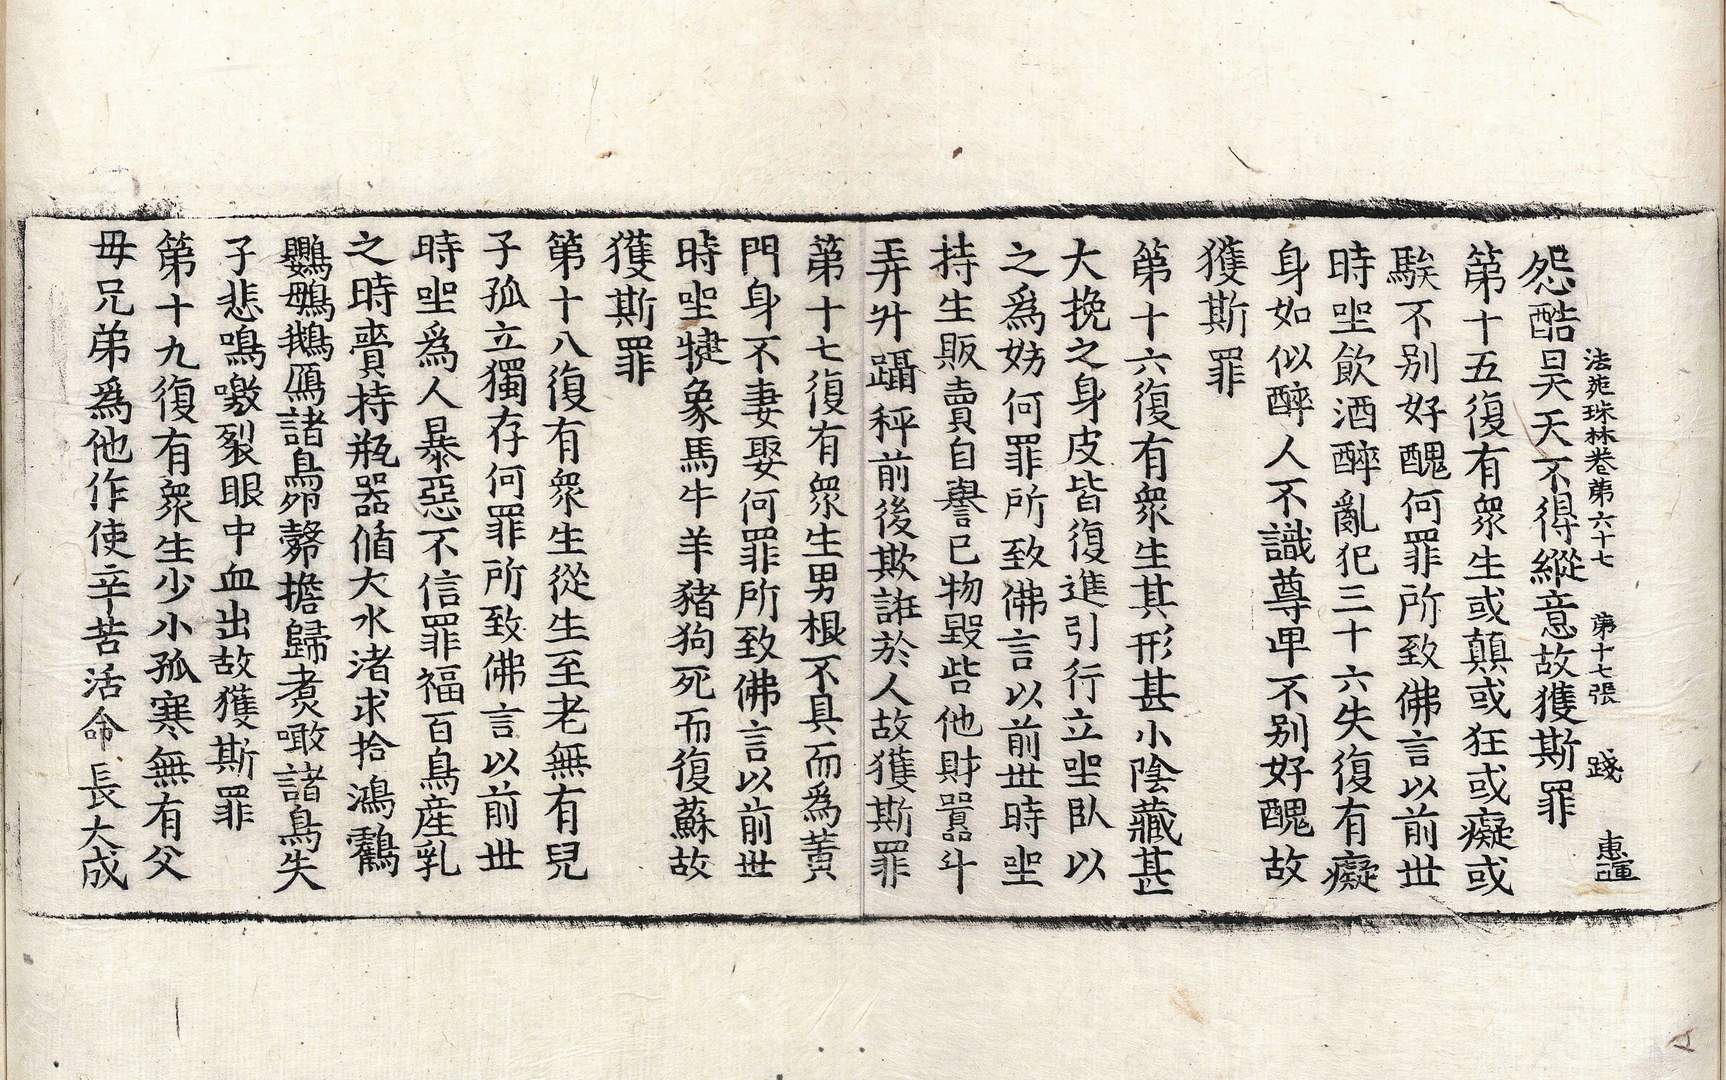 法苑珠林卷第六十七　第十七張　踐　惠運
怨酷旻天不得縱意故獲斯罪
第十五復有衆生或顛或狂或癡或
騃不別好醜何罪所致佛言以前世
時坐飲酒醉亂犯三十六失復有癡
身如似醉人不識尊卑不別好醜故
獲斯罪
第十六復有衆生其形甚小陰藏甚
大挽之身皮皆復進引行立坐卧以
之爲妨何罪所致佛言以前世時坐
持生販賣自譽己物毀呰他財嚣斗
弄升躡秤前後欺誑於人故獲斯罪
第十七復有衆生男根不具而爲黃
門身不妻娶何罪所致佛言以前世
時坐犍象馬牛羊豬狗死而復蘇故
獲斯罪
第十八復有衆生從生至老無有兒
子孤立獨存何罪所致佛言以前世
時坐爲人暴惡不信罪福百鳥産乳
之時賫持瓶器循大水渚求拾鴻鸖
鸚鵡鵝鴈諸鳥卵㲉擔歸煮噉諸鳥失
子悲鳴噭裂眼中血出故獲斯罪
第十九復有衆生少小孤寒無有父
母兄弟爲他作使辛苦活命長大成